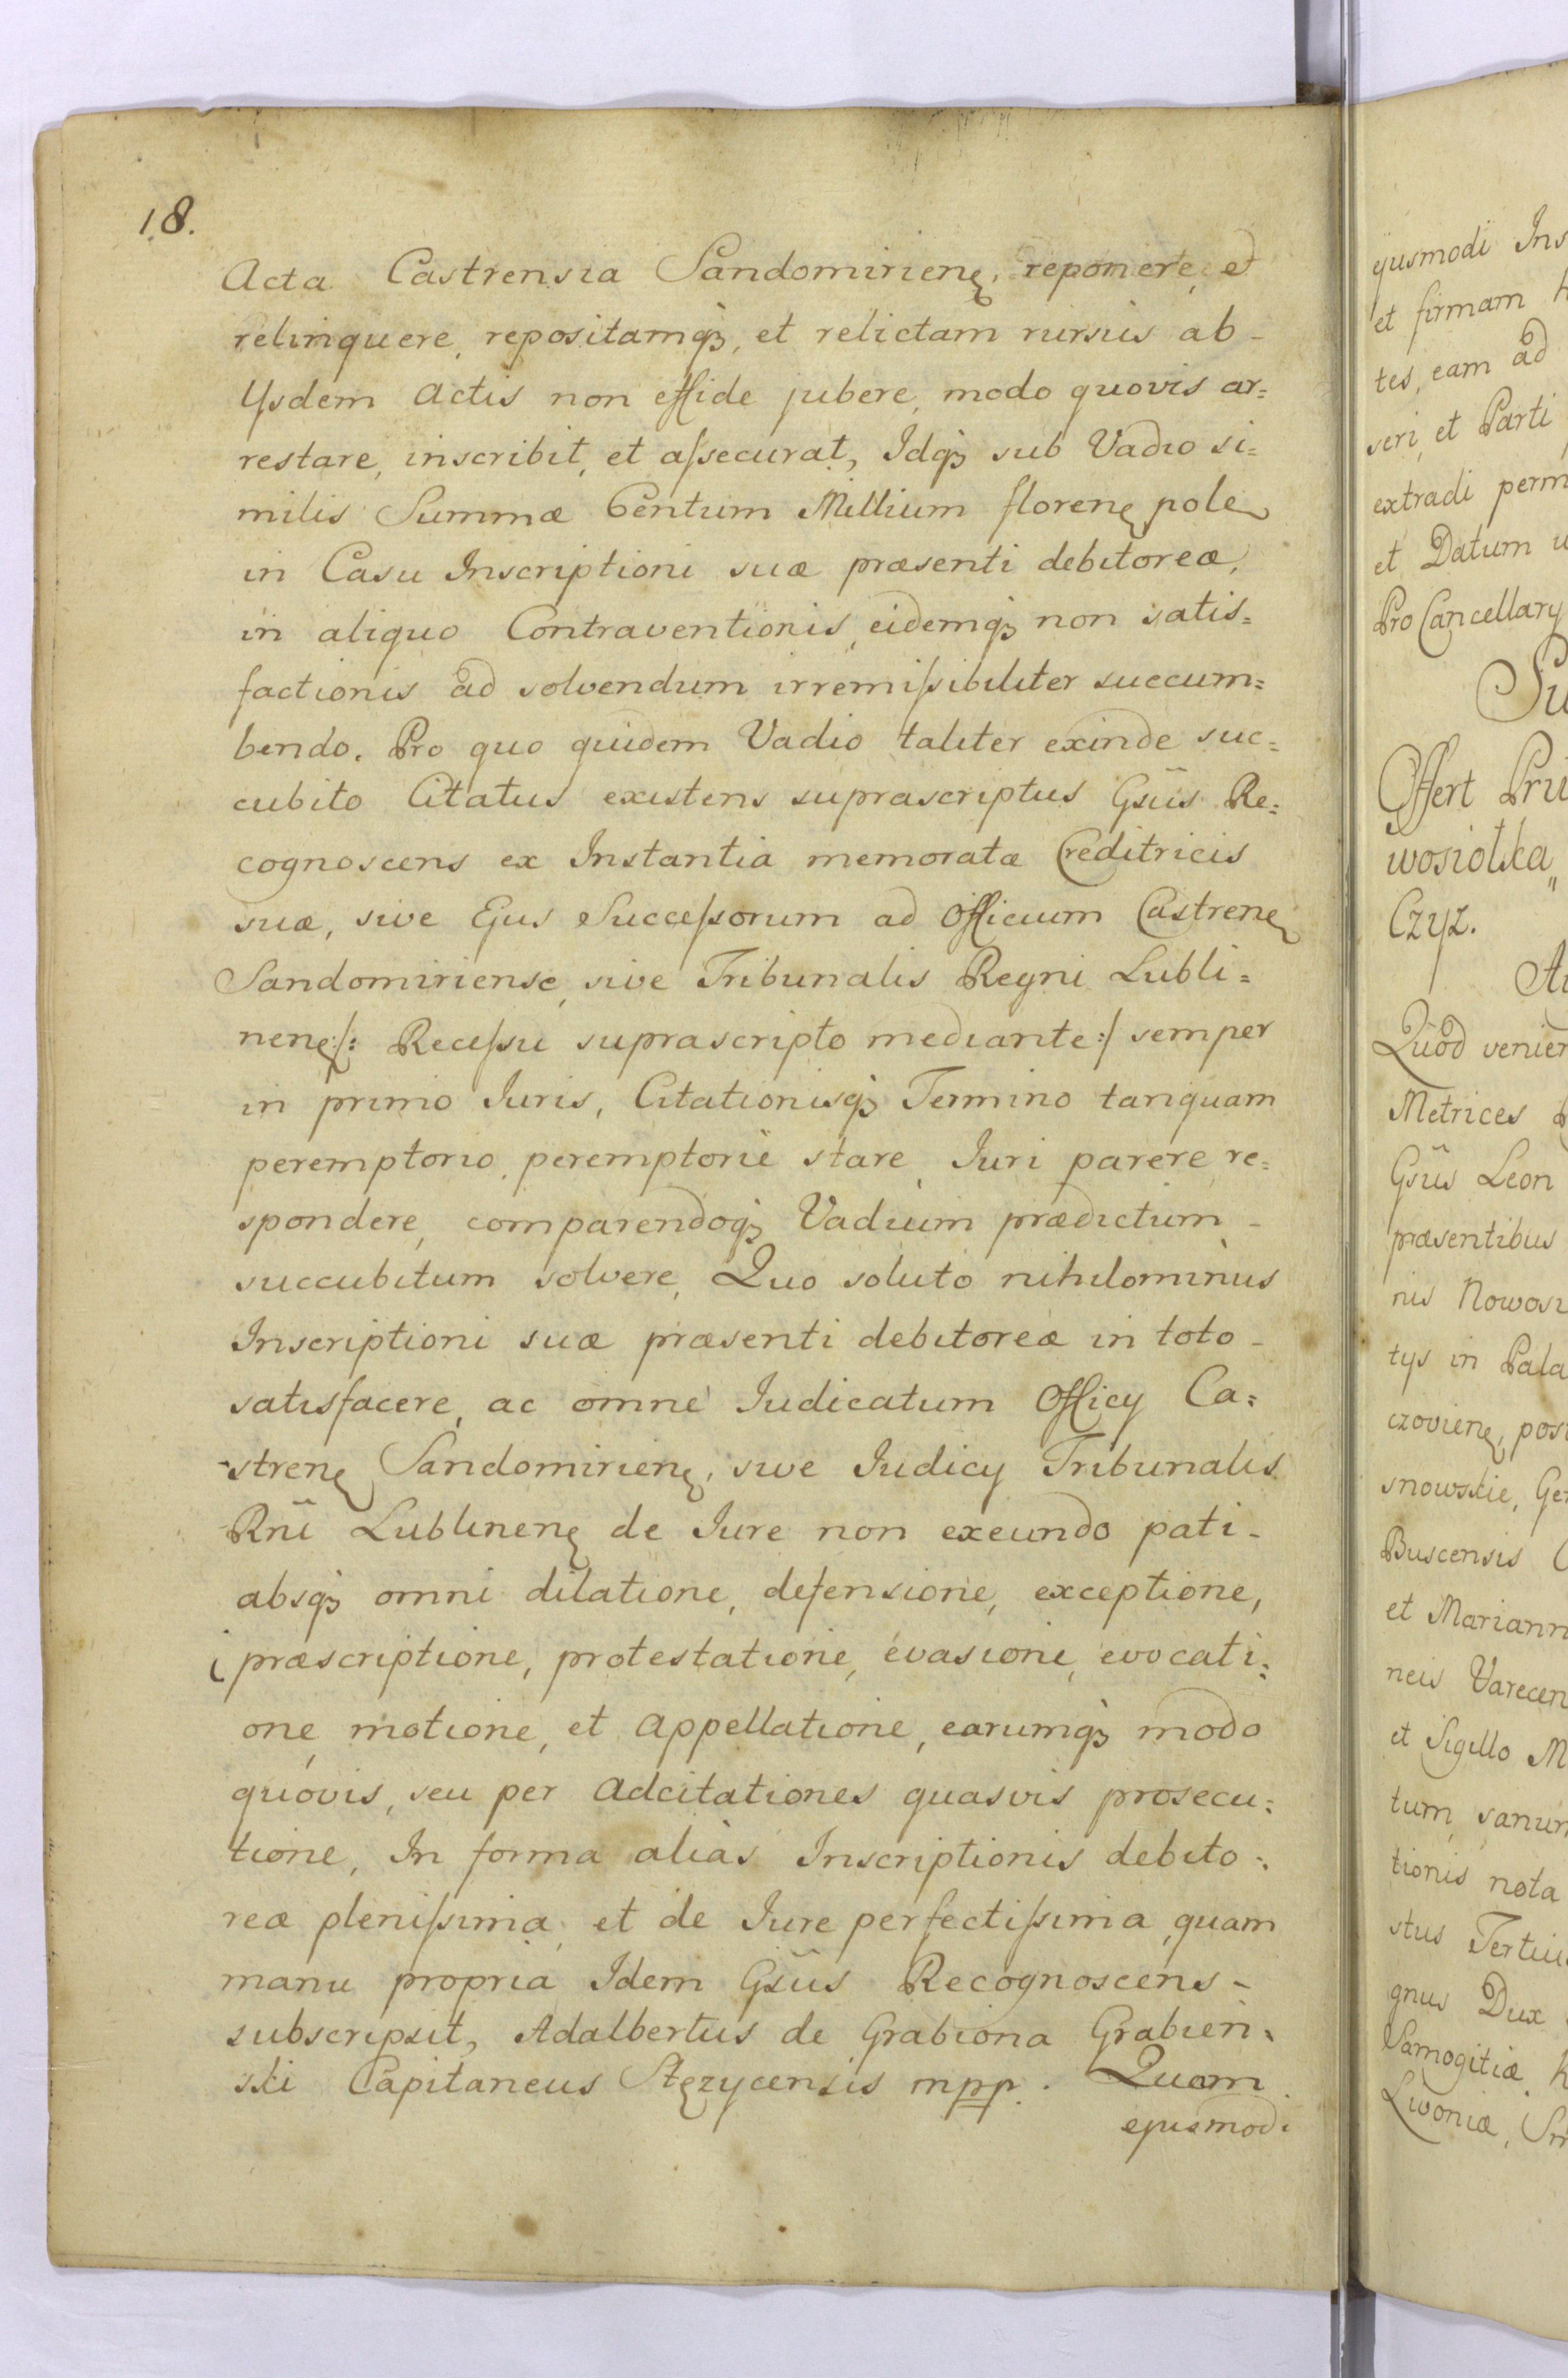 18.
Acta Castrensia Sandomirienę, reponere, et
relinquere, repositamqꝫ, et relictam rursus ab-
Ysdem Actis non effide jubere, modo quovis ar=
restare, inscribit, et aſsecurat, Idqꝫ sub Vadio si=
milis Summæ Centum Millium florenę polę
in Casu Inscriptioni suæ præsenti debitoreæ,
in aliquo Contraventionis, eidemqꝫ non satis=
factionis ad solvendum irremiſsibiliter succum=
bendo. Pro quo quidem Vadio taliter exinde suc=
cubito Citatus existens suprascriptus Gsũs Re=
cognoscens ex Instantia memoratæ Creditricis
suæ, sive Ejus Succeſsorum ad Officium Castrenę
Sandomiriense, sive Tribunalis Regni Lubli=
nenę/: Receſsu suprascripto mediante:/ semper
in primo Iuris, Citationisqꝫ Termino tanquam
peremptorio, peremptorie stare, Iuri parere re=
spondere, comparendoqꝫ Vadium prædictum -
succubitum solvere, Quo soluto nihilominus
Inscriptioni suæ præsenti debitoreæ in toto -
satisfacere, ac omne Iudicatum Officy Ca=
strenę Sandomirienę, sive Iudicy Tribunalis
Rñi Lublinenę de Iure non exeundo pati -
absqꝫ omni dilatione, defensione, exceptione,
præscriptione, protestatione, evasione, evocati=
one, motione, et Appellatione, earumqꝫ modo
quovis, seu per Adcitationes quasvis prosecu=
tione, In forma aliàs Inscriptionis debito=
reæ pleniſsima, et de Iure perfectiſsima, quam
manu propria Idem Gsũs Recognoscens -
subscripsit, Adalbertus de Grabiona Grabien=
ski Capitaneus Stęzycensis mpp. Quam
ejusmodi
yusmodi Ins
et firmam
tes, eam ad
seri, et Parti
extradi perm
et Datum
Pro Cancellary
Offert
wosiołka„
Czyż.
Quod venien
Metrices
Gsũs Leon
præsentibus
nis Nowosi
tys in Pala
czovienę, pos
snowskie, Ge
Buscensis
et Mariann
neis Varecen
et Sigillo M
tum, sanum
tionis nota
stus Tertiu
gnus Dux
Samogitiæ, K
Livoniæ, Sm